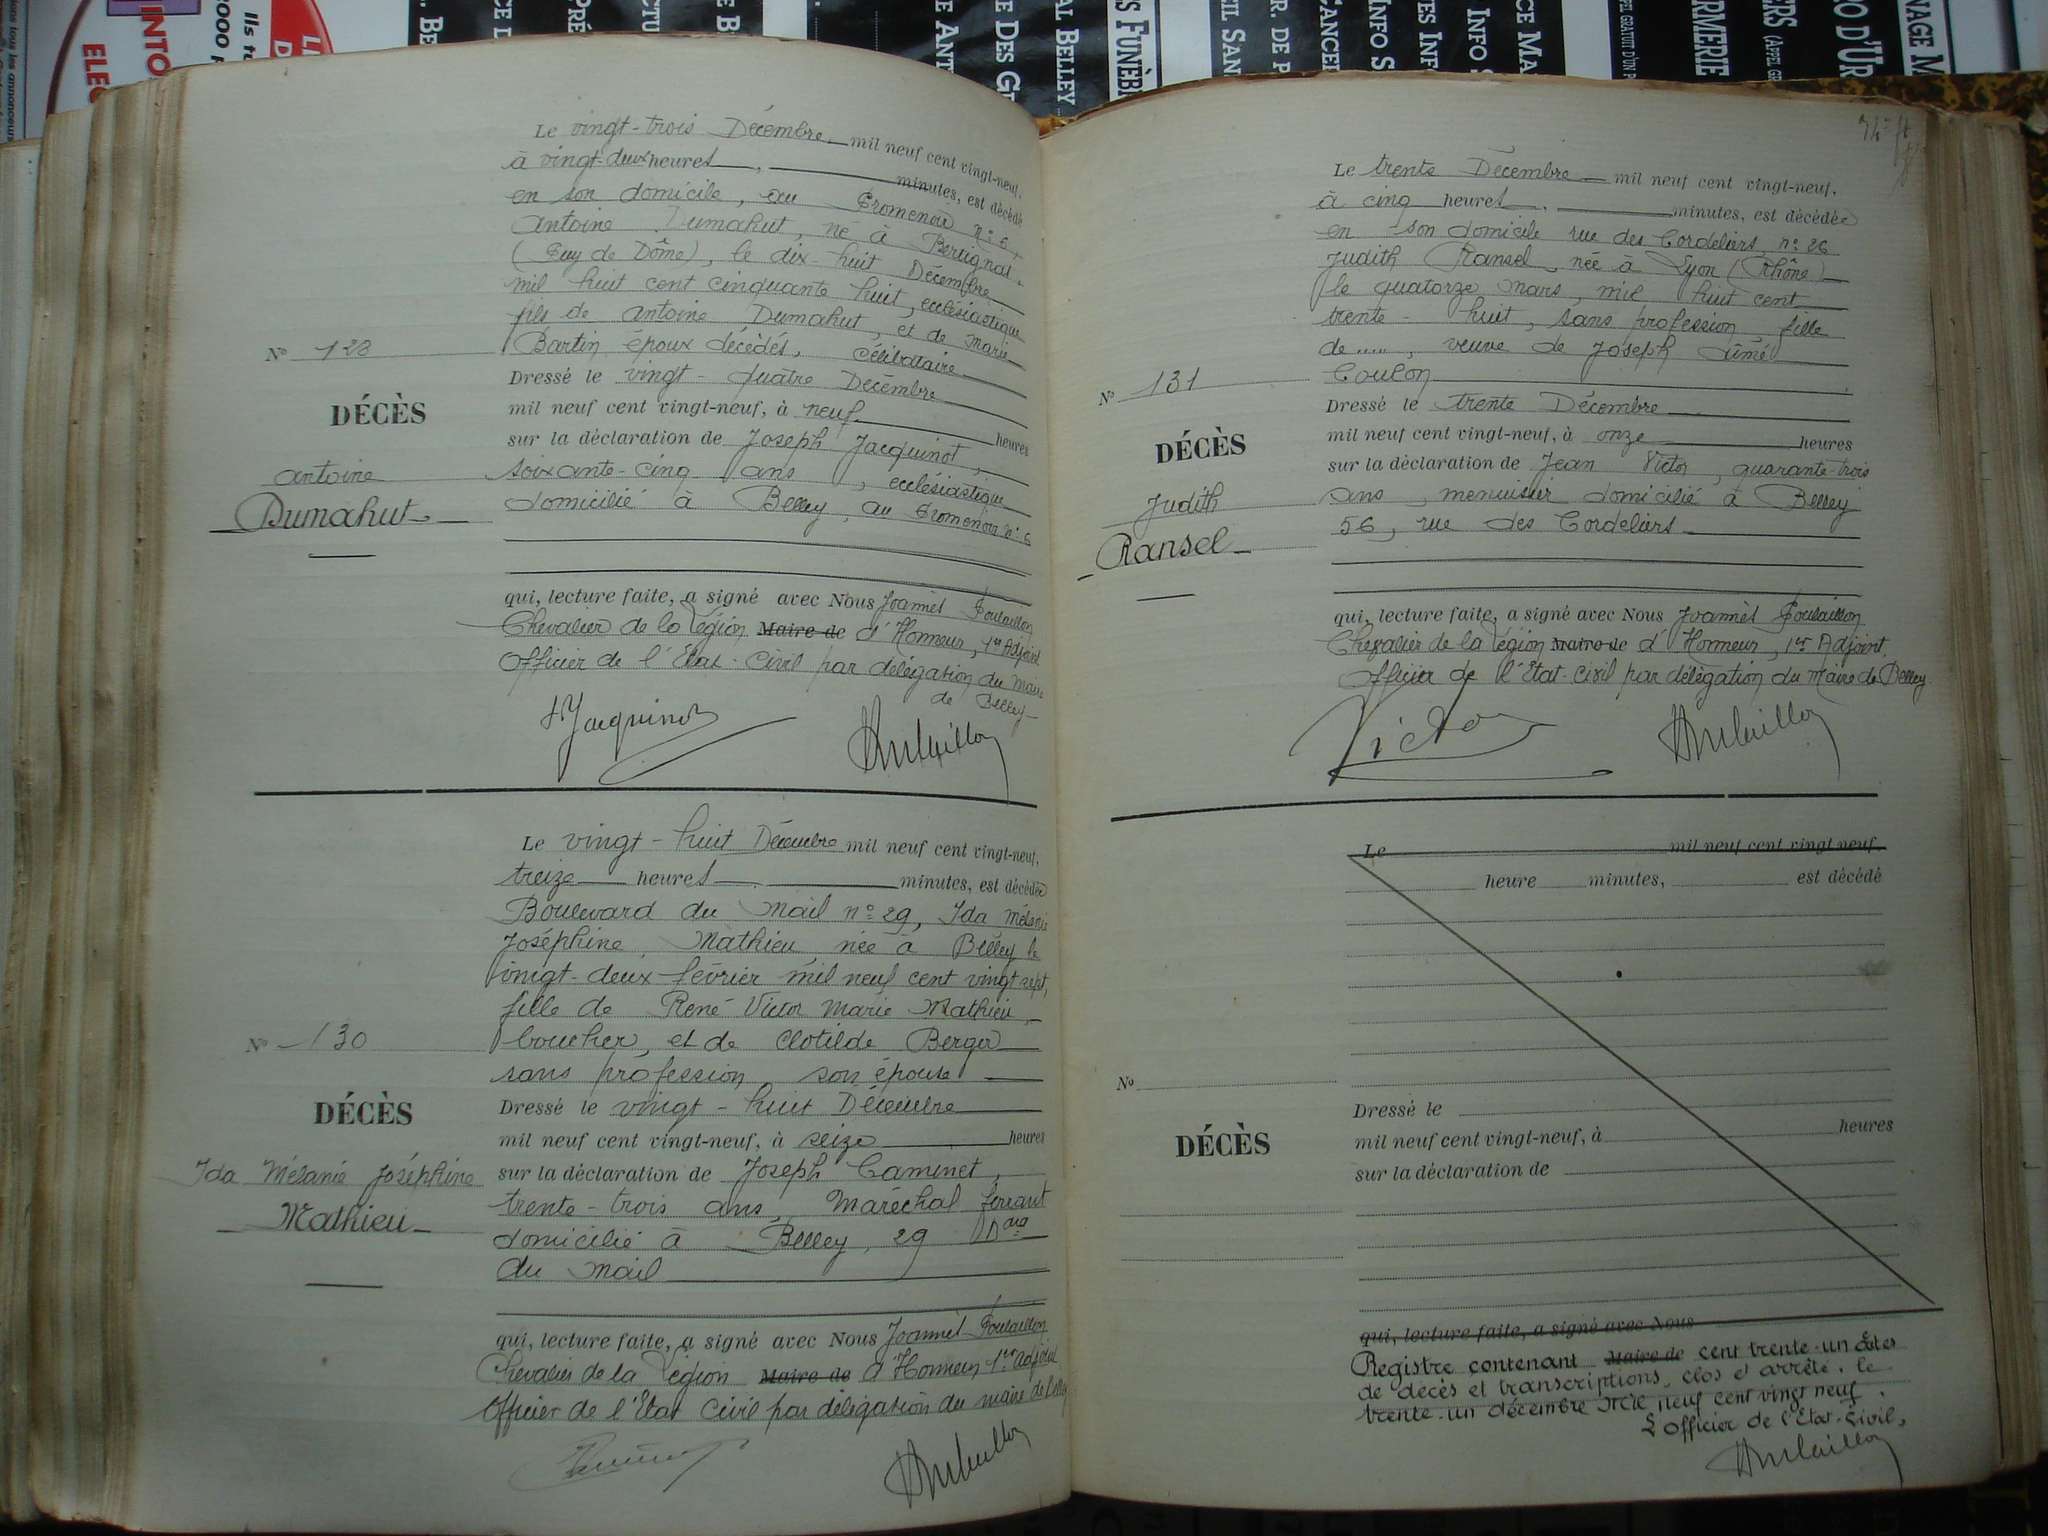 Le vingt-trois Décembre mil neuf cent vingt-neuf,
à vingt-deux heures, minutes, est décédé
en son domicile, au Promenoir n° 6,
Antoine Dumahut, né à Bertignat
(Puy de Dôme), le dix-huit Décembre
mil huit cent cinquante huit, ecclésiastique
fils de Antoine Dumahut, et de Marie
Bartin époux décédés, célibataire
N°
DÉCÈS
Antoine
Dumahut
Dressé le vingt-quatre Décembre
mil neuf cent vingt-neuf, à neuf heures
sur la déclaration de Joseph Jacquinot,
soixante-cinq ans, ecclésiastique
domicilié à Belley, au Promenoir n° 6
qui, lecture faite, a signé avec Nous Joannès Poulaillon
Chevalier de la Légion Maire de d'Honneur, 1er Adjoint
Officier de l'État-Civil par délégation du Maire
de Belley
Jacquinot
Le vingt-huit Décembre mil neuf cent vingt-neuf,
treize heures minutes, est décédée
Boulevard du Mail n° 29, Ida Mélanie
Joséphine Mathieu née à Belley le
vingt-deux février mil neuf cent vingt sept,
fille de René Victor Marie Mathieu,
boucher, et de Clotilde Berger
sans profession son épouse
N° 130
DÉCÈS
Ida Mélanie Joséphine
Mathieu
Dressé le vingt-huit Décembre
mil neuf cent vingt-neuf, à seize heures
sur la déclaration de Joseph Caminet,
trente-trois ans, Maréchal ferrant
domicilié à Belley, 29 Bard
du Mail
qui, lecture faite, a signé avec Nous Joannès Poulaillon
Chevalier de la Légion Maire de d'Honneur 1er Adjoint
Officier de l'État Civil par délégation du maire de Belley
Le trente Décembre mil neuf cent vingt-neuf,
à cinq heures, minutes, est décédée
en son domicile rue des Cordeliers, n° 26
Judith Ransel, née à Lyon (Rhône)
le quatorze mars, mil huit cent
trente-huit, sans profession fille
de ....., veuve de Joseph Aimé
Coulon
N° 131
DÉCÈS
Judith
Ransel
Dressé le trente Décembre
mil neuf cent vingt-neuf, à onze heures
sur la déclaration de Jean Victor, quarante-trois
ans, menuisier domicilié à Belley
56, rue des Cordeliers
qui, lecture faite, a signé avec Nous Joannès Poulaillon
Chevalier de la Légion Maire de d'Honneur, 1er Adjoint,
Officier de l'État-civil par délégation du Maire de Belley
Victor
Le mil neuf cent vingt-neuf,
heure minutes, est décédé
N°
DÉCÈS
Dressé le
mil neuf cent vingt-neuf, à heures
sur la déclaration de
qui, lecture faite, a signé avec Nous
Registre contenant Maire de cent trente-un actes
de décès et transcriptions, clos et arrêté, le
trente-un décembre mil neuf cent vingt neuf.
L'Officier de l'État-Civil,